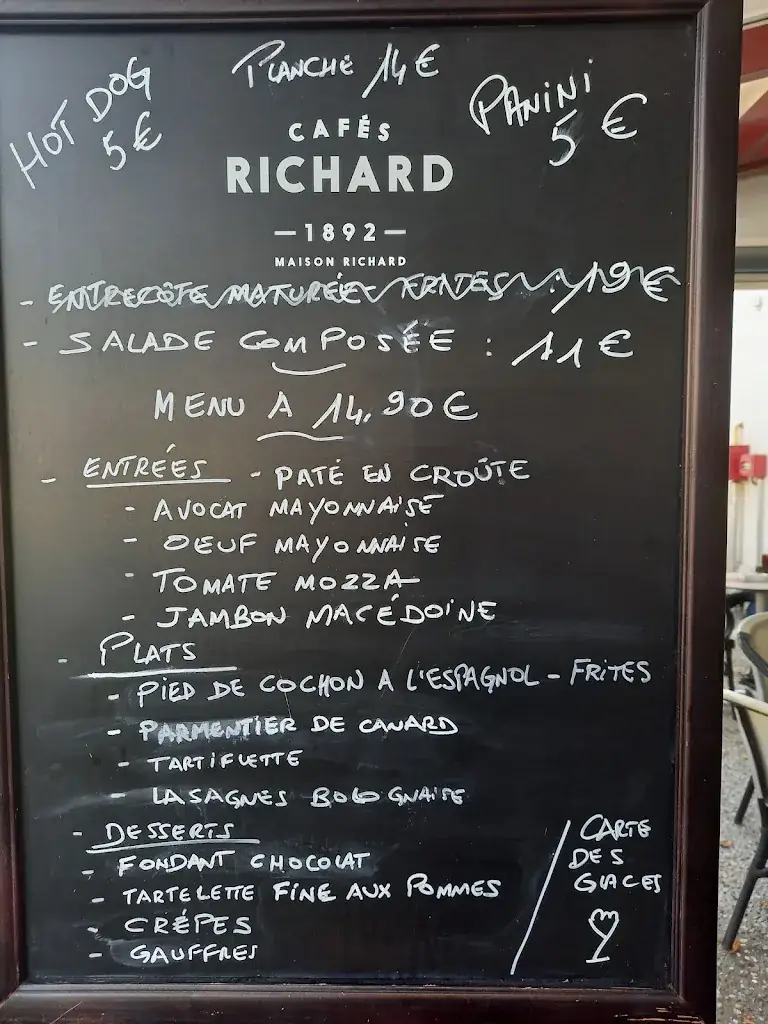 HOT DOG
5€
PLANCHE 14€
PANINI
5€
CAFÉS
RICHARD
—1892—
MAISON RICHARD
- ENTRECÔTE MATURÉE FRITES : 19€
- SALADE COMPOSÉE : 11€
MENU A 14,90€
- ENTRÉES - PATÉ EN CROÛTE
- AVOCAT MAYONNAISE
- OEUF MAYONNAISE
- TOMATE MOZZA
- JAMBON MACÉDOINE
- PLATS
- PIED DE COCHON A L'ESPAGNOL - FRITES
- PARMENTIER DE CANARD
- TARTIFLETTE
- LASAGNES BOLOGNAISE
- DESSERTS
- FONDANT CHOCOLAT
- TARTELETTE FINE AUX POMMES
- CRÉPES
- GAUFFRES
CARTE
DES
GLACES